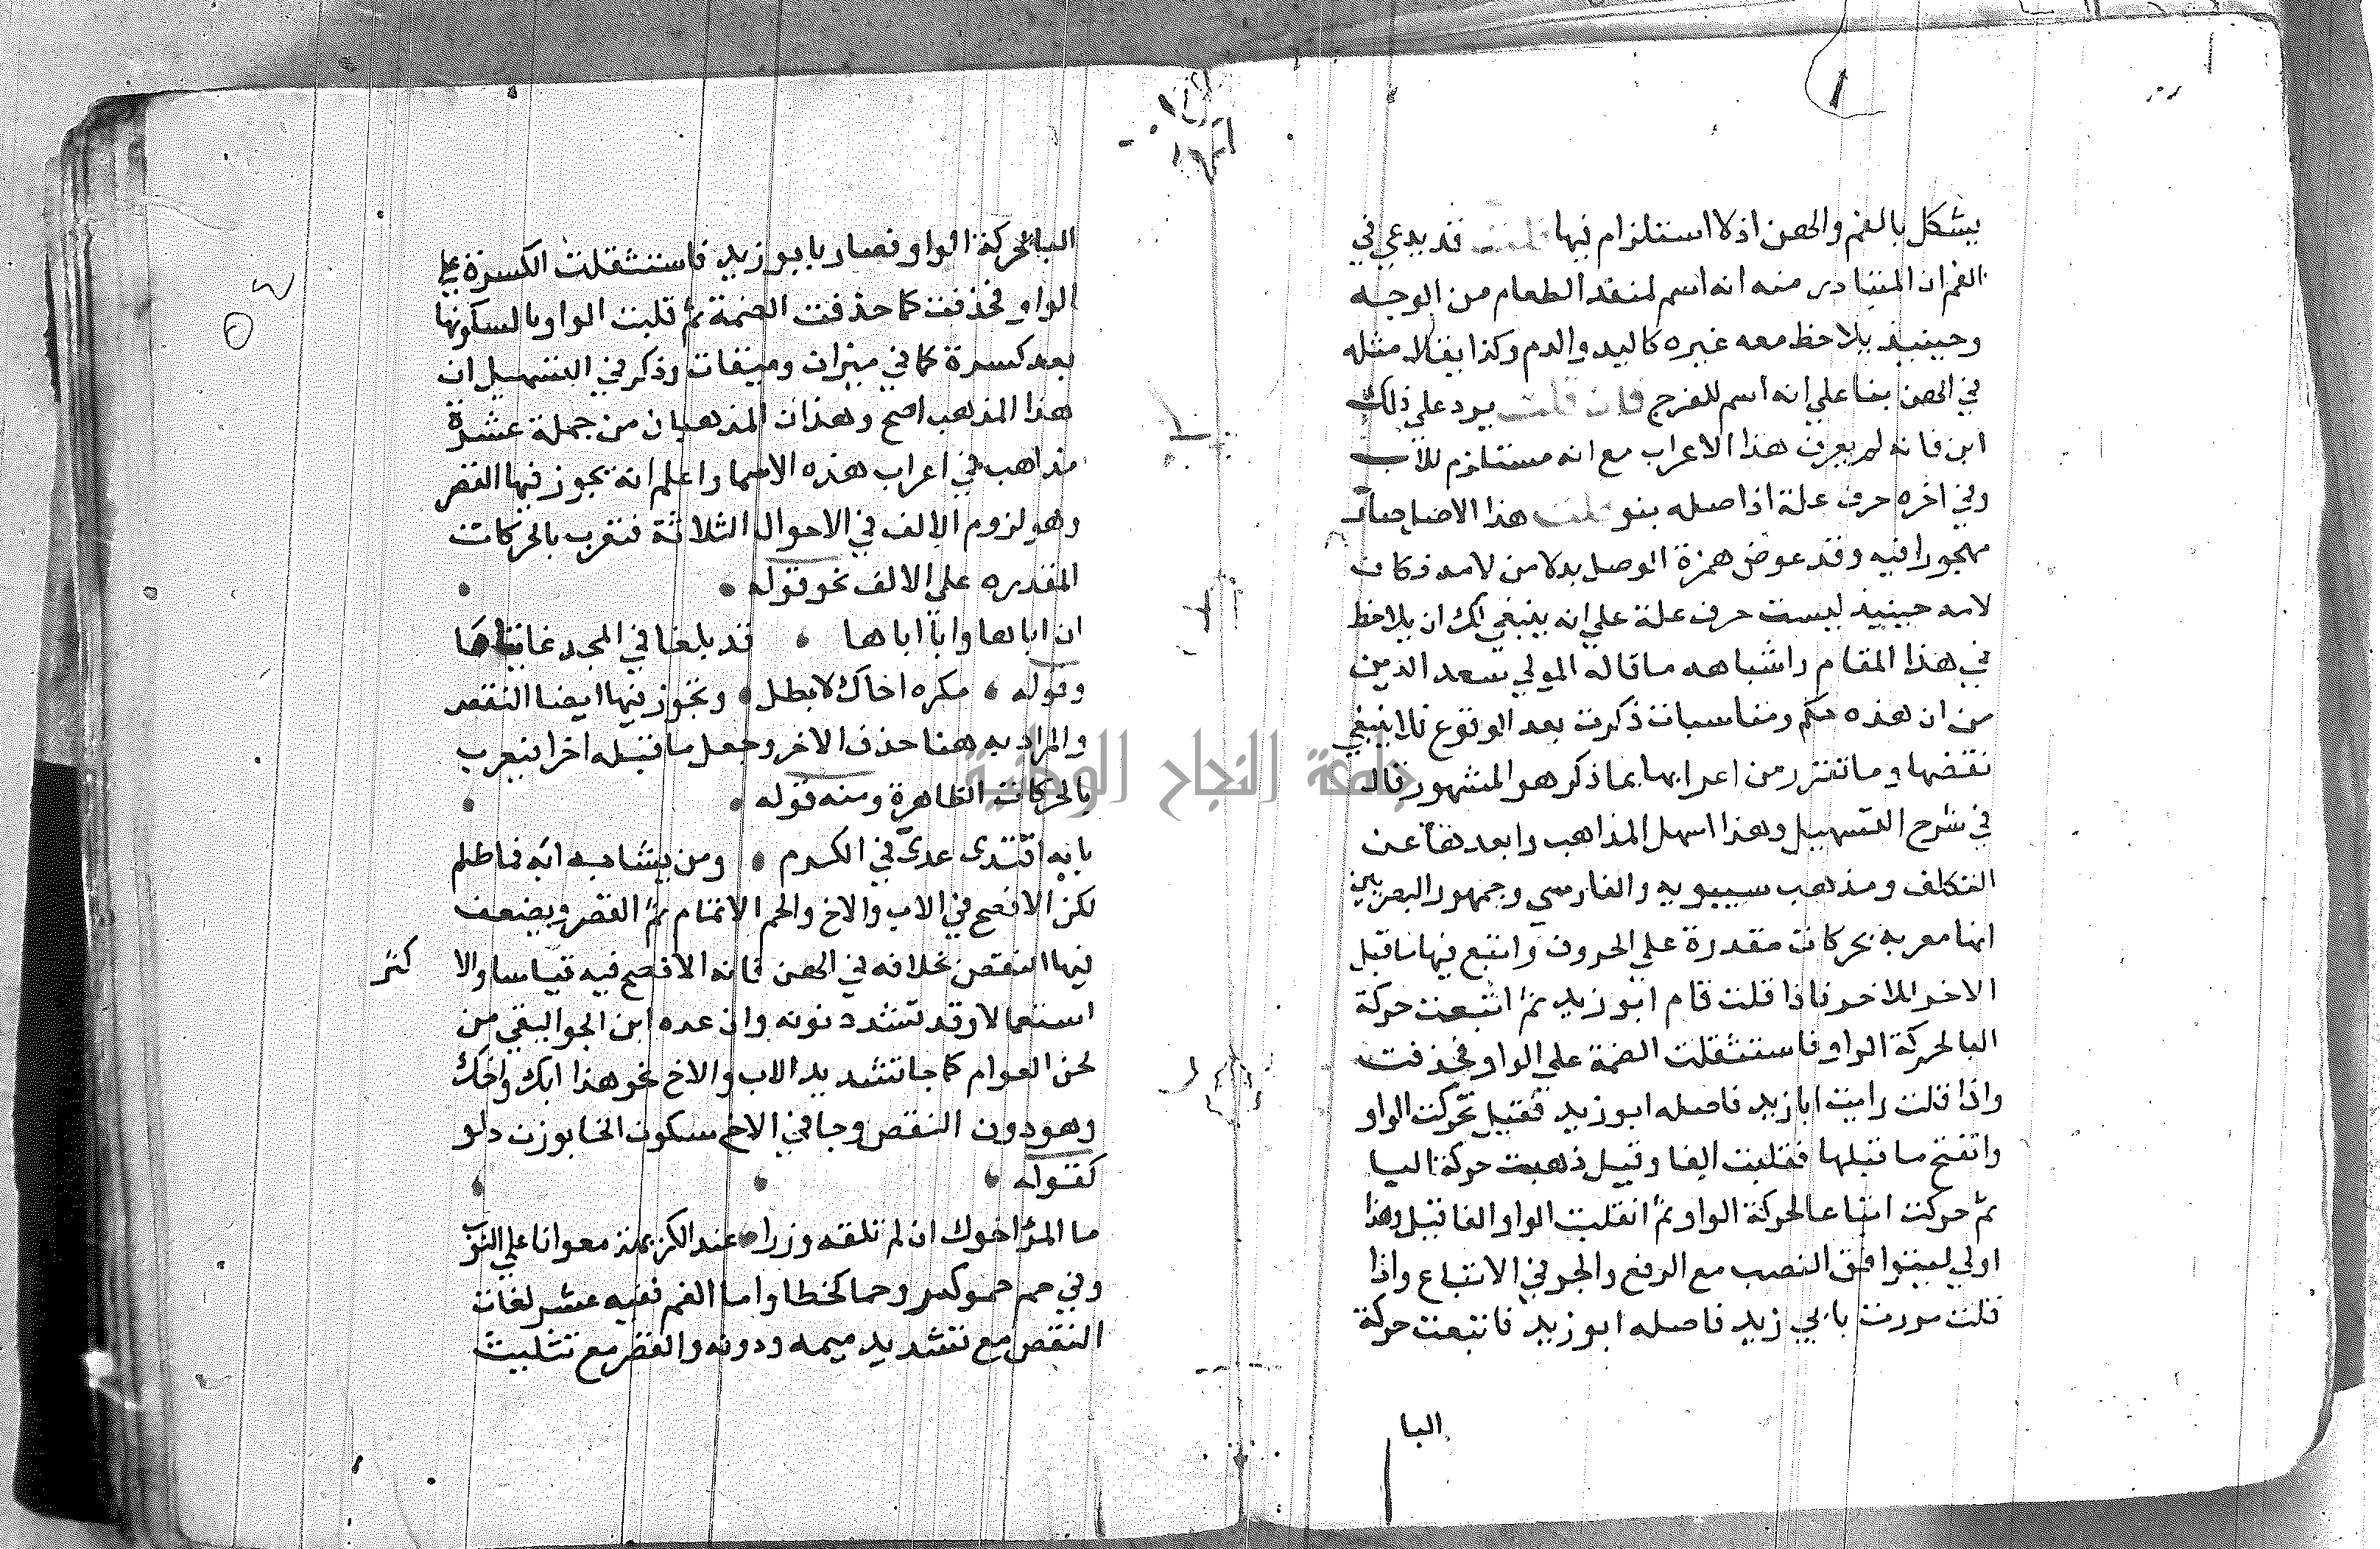 يشكل بالفم والهن اذ لا استلزام فيها قلت قد يدعي في
الفم ان المتبادر منه انه اسم لمنفذ الطعام من الوجه
وحينيذ يلاحظ معه غيره كاليد والدم وكذا يقال مثله
في الهن بنا علي انه اسم للفرج فان قلت يرد علي ذلك
ابن فانه لم يعرف هذا الاعراب مع انه مستلزم للاب
وفي اخره حرف علة اذ اصله بنو قلت هذا الاصل صار
مهجورا فيه وقد عوض همزة الوصل بدلا من لامه فكات
لامه حينيذ ليست حرف علة علي انه ينبغي لك ان يلاحظ
في هذا المقام واشباهه ما قاله المولي سعد الدين
من ان هذه حكم ومناسبات ذكرت بعد الوقوع فلا ينبغي
نقضها وما تقرر من اعرابها بما ذكر هو المشهور قال
في شرح التسهيل وهذا اسهل المذاهب وابعدها عن
التكلف ومذهب سيبويه والفارسي وجمهور البصريين
انها معربة بحركات مقدرة علي الحروف واتبع فيها ما قبل
الاخر للاخر فاذا قلت قام ابو زيد ثم اتبعت حركة
البا لحركة الواو فاستثقلت الضمة علي الواو فحذفت
واذا قلت رايت ابا زيد فاصله ابو زيد فقيل تحركت الواو
وانفتح ما قبلها فقلبت الفا وقيل ذهبت حركة البا
ثم حركت اتباعا لحركة الواو ثم انقلبت الواو الفا قيل وهذا
اولي ليتوافق النصب مع الرفع والجر في الاتباع واذا
قلت مررت بابي زيد فاصله ابو زيد فاتبعت حركة
البا
البا لحركة الواو فصار بابو زيد فاستثقلت الكسرة علي
الواو فحذفت كما حذفت الضمة ثم قلبت الواو يا لسكونها
بعد كسرة كما في ميزان وميقات وذكر في التسهيل ان
هذا المذهب اصح وهذان المذهبان من جملة عشرة
مذاهب في اعراب هذه الاسما واعلم انه يجوز فيها القصر
وهو لزوم الالف في الاحوال الثلاثة فتعرب بالحركات
المقدره علي الالف نحو قوله
ان اباها وابا اباها قد بلغا في المجد غايتاها
وقوله مكره اخاك لا بطل وتجوز فيها ايضا النقص
والمراد به هنا حذف الاخر وجعل ما قبله اخرا فيعرب
بالحركات الظاهرة ومنه قوله
بابه اقتدى عدى في الكرم ومن يشابه ابه فما ظلم
لكن الافصح في الاب والاخ والحم الاتمام ثم القصر ويضعف
فيها النقص بخلافه في الهن فانه الافصح فيه قياسا والا كثر
استعمالا وقد تشدد نونه وان عده ابن الجواليقي من
لحن العوام كما جا تشديد الاب والاخ نحو هذا ابك واخك
وهو دون النقص وجا في الاخ سكون الخا بوزن دلو
كقوله
ما المرا اخوك ان لم تلفه وزرا عند الكريهة معوانا علي النوب
وفي حم حمو كدلو وحما كخطا واما الفم ففيه عشر لغات
النقص مع تشديد ميمه ودونه والقصر مع تثليث